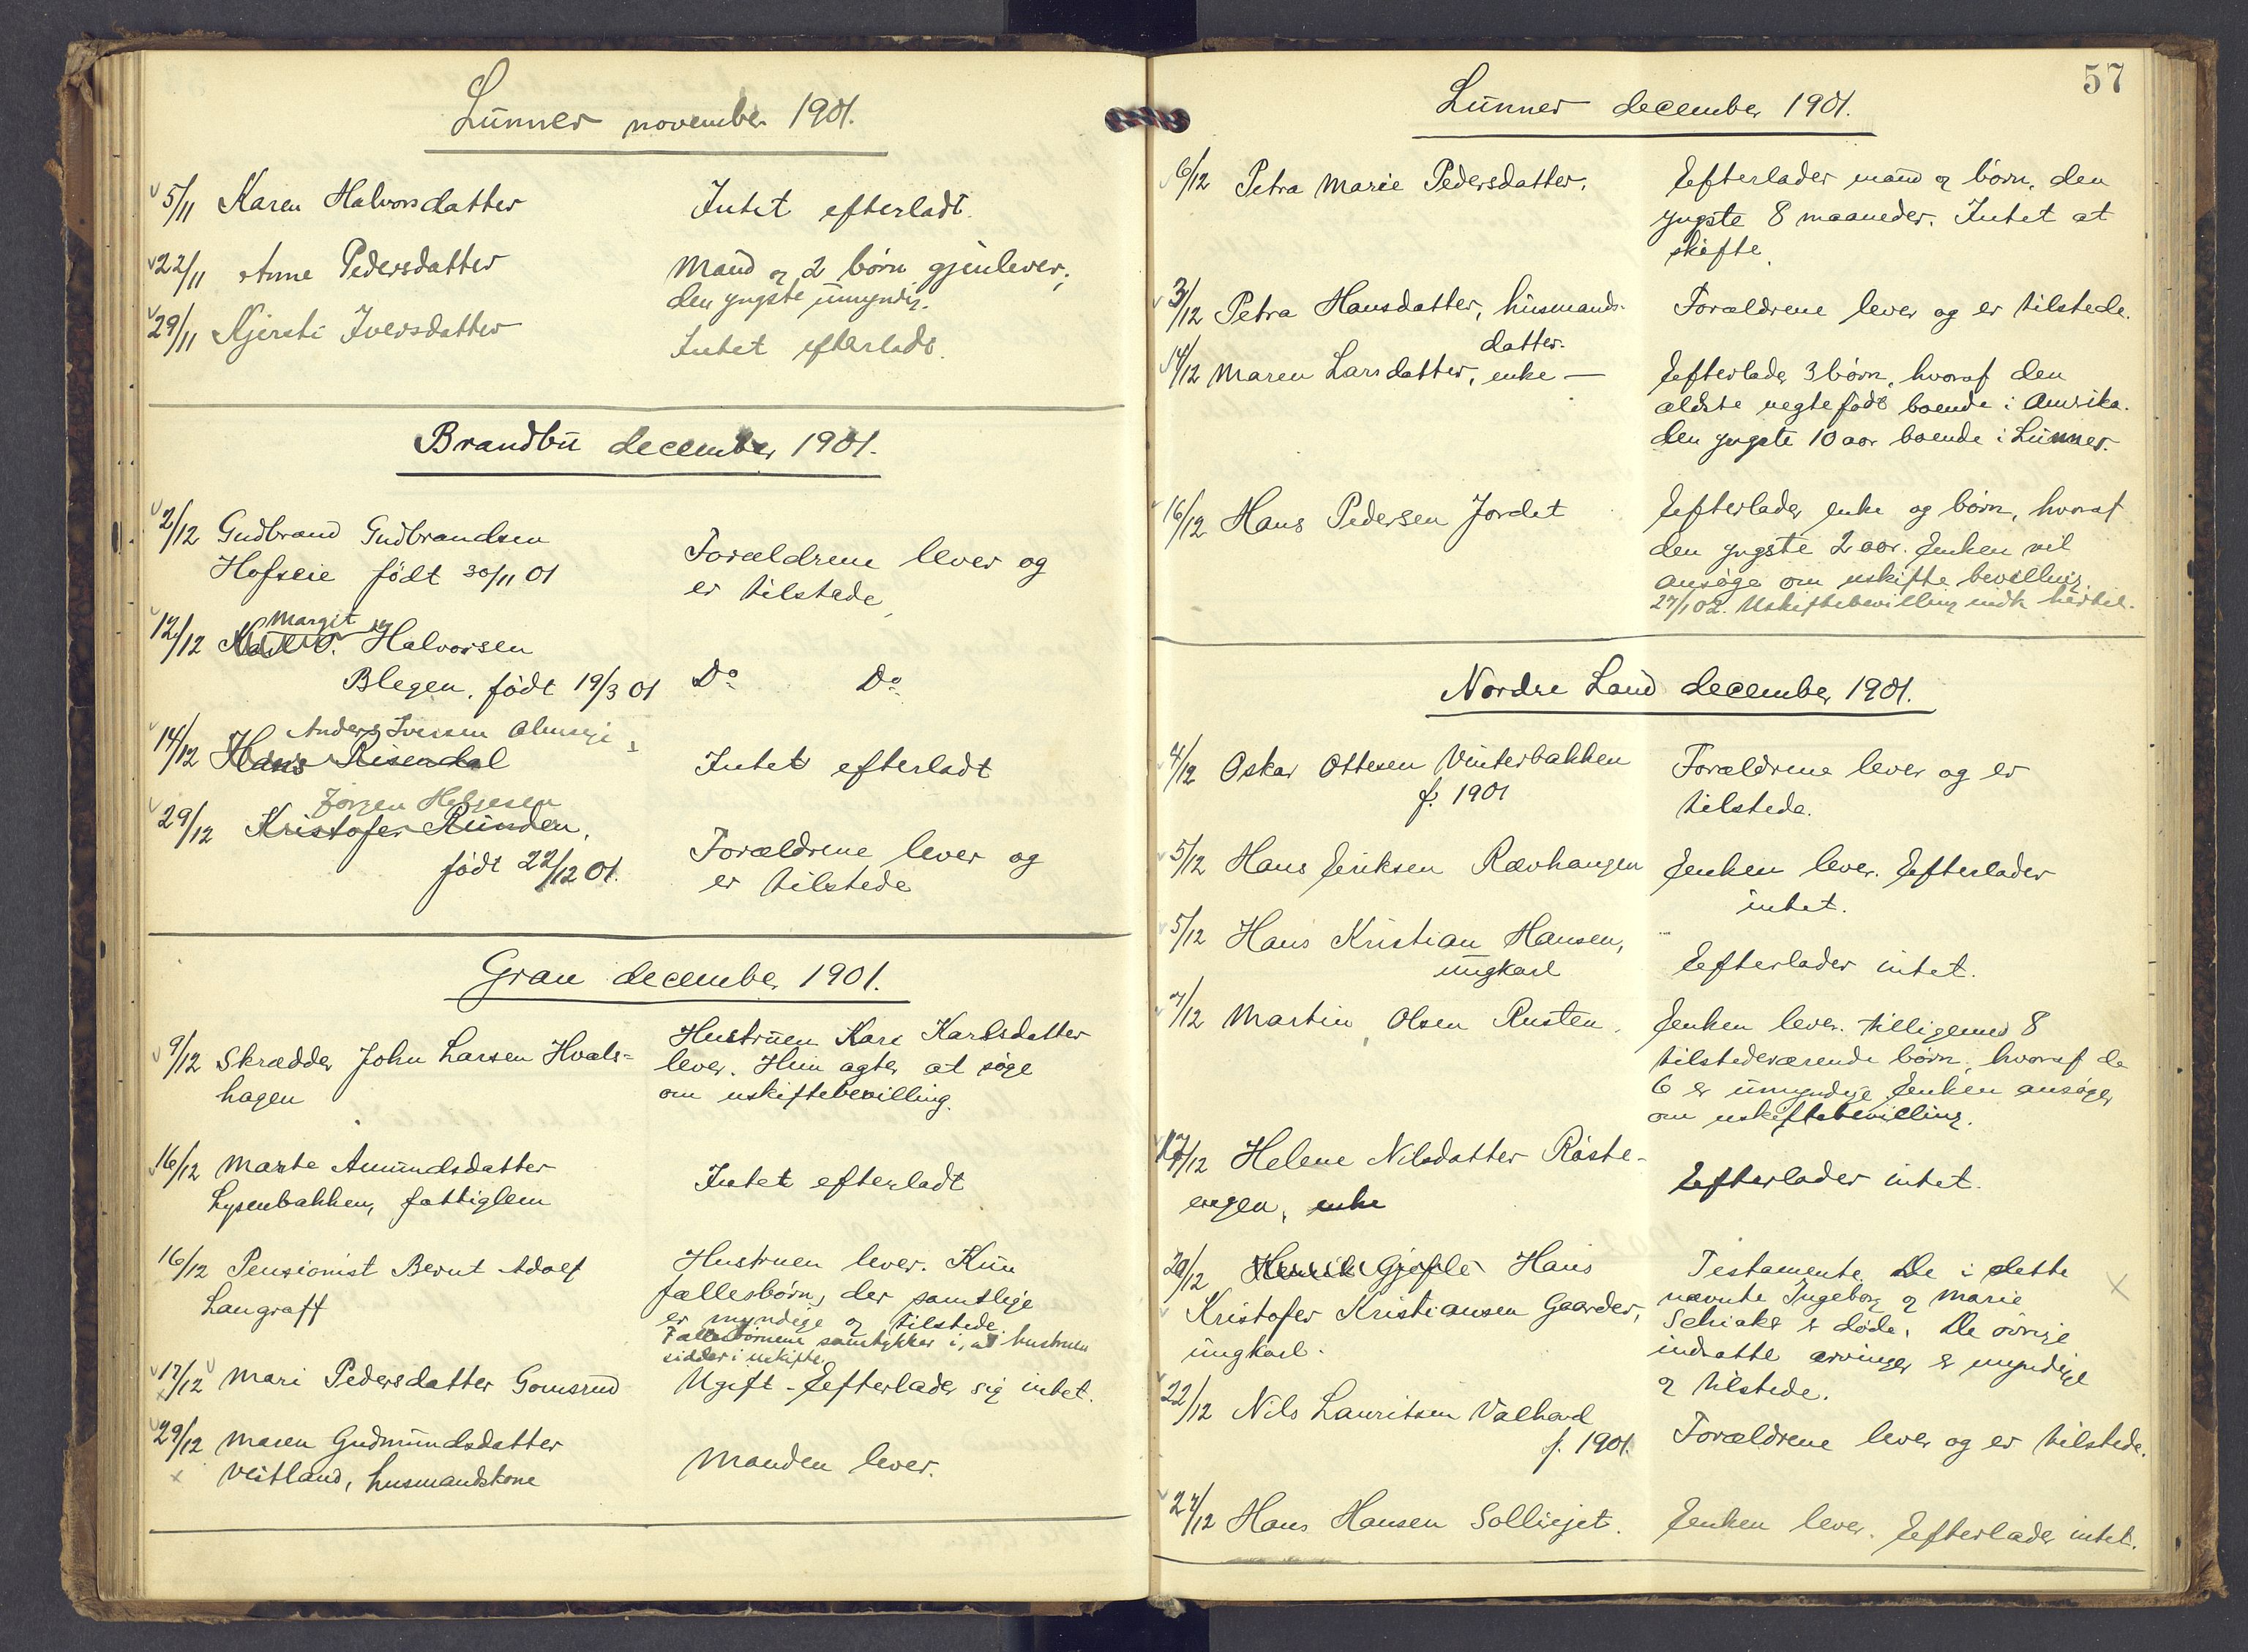 Lunner november 1901.
5/11 Karen Halvorsdatter
Intet efterladt.
22/11 Anne Pedersdatter
Mand og 2 børn gjenlever,
den yngste umyndig.
29/11 Kjersti Iversdatter
Intet efterladt.
Brandbu december 1901.
2/12 Gudbrand Gudbrandsen
Hofseie født 30/11 01
Forældrene lever og
er tilstede
Margit
12/12 Halvorsen
Blegen, født 19/3 01
Do Do
Anders Iversen
14/12 Hans Risendal
Intet efterladt
Jørgen Helgesen
29/12 Kristofer Runden,
født 22/12 01.
Forældrene lever og
er tilstede
Gran december 1901.
9/12 Skrædder John Larsen Hvals-
hagen
Hustruen Kari Karlsdatter
lever. Hun agter at søge
om uskiftebevilling.
16/12 Marte Amundsdatter
Lysenbakken, fattiglem
Intet efterladt
16/12 Pensionist Bernt Adolf
Langraff
Hustruen lever. Kun
fællesbørn, der samtlige
er myndige og tilstede.
Fællesbørnene samtykker i, at hustruen
sidder i uskifte.
17/12 Mari Pedersdatter Gomsrud
Ugift - Efterlader sig intet.
29/12 Maren Gudmundsdatter
Vestland, husmandskone
Manden lever.
57
Lunner december 1901.
6/12 Petra Marie Pedersdatter.
Efterlader mand og børn, den
yngste 8 maaneder. Intet at
skifte.
3/12 Petra Hansdatter, husmands-
datter.
Forældrene lever og er tilstede.
14/12 Maren Larsdatter, enke —
Efterlader 3 børn, hvoraf den
ældste uegte født boende i Amerika.
den yngste 10 aar boende i Lunner.
16/12 Hans Pedersen Jordet
Efterlader enke og børn, hvoraf
den yngste 2 aar. Enken vil
ansøge om uskifte bevilling.
27/1 02. Uskiftebevilling indk hertil.
Nordre Land december 1901.
4/12 Oskar Ottesen Vinterbakken
f. 1901
Forældrene lever og er
tilstede.
5/12 Hans Eriksen Rævhaugen
Enken lever. Efterlader
intet.
5/12 Hans Kristian Hansen,
ungkarl
Efterlader intet.
7/12 Martin Olsen Rusten.
Enken lever tilligemed 8
tilstedeværende børn, hvoraf de
6 er umyndige. Enken ansøger
om uskiftebevilling.
17/12 Helene Nilsdatter Røste-
engen, enke
Efterlader intet.
20/12 Henrik Gjøfle Hans
Kristofer Kristiansen Gaarder,
ungkarl.
Testamente. De i dette
nævnte Ingeborg og Marie
er døde. De øvrige
indsatte arvinger er myndige
og tilstede.
22/12 Nils Lauritsen Valhovd
f. 1901.
Forældrene lever og er tilstede.
27/12 Hans Hansen Solliejet.
Enken lever. Efterlader intet.